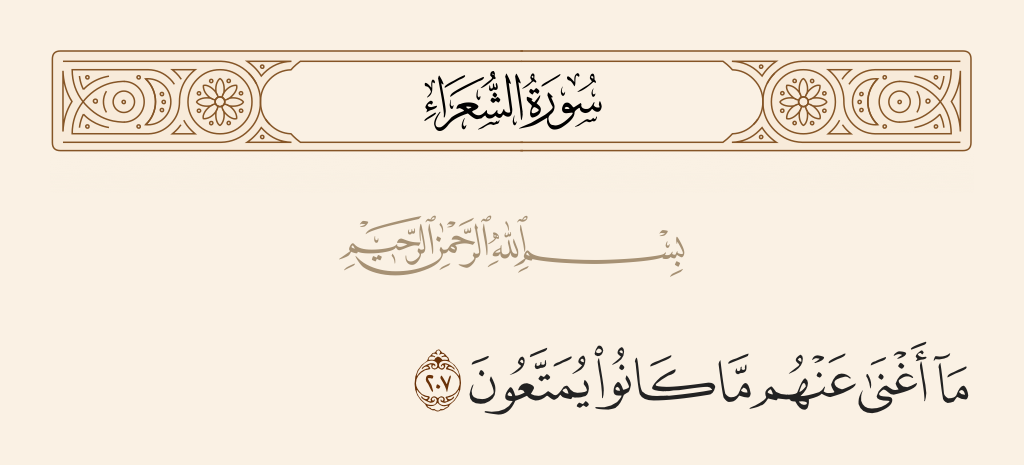 سُورَةُ الشُّعَرَاءِ
بِسْمِ ٱللَّهِ ٱلرَّحْمَٰنِ ٱلرَّحِيمِ
مَآ أَغْنَىٰ عَنْهُم مَّا كَانُوا۟ يُمَتَّعُونَ ٢٠٧